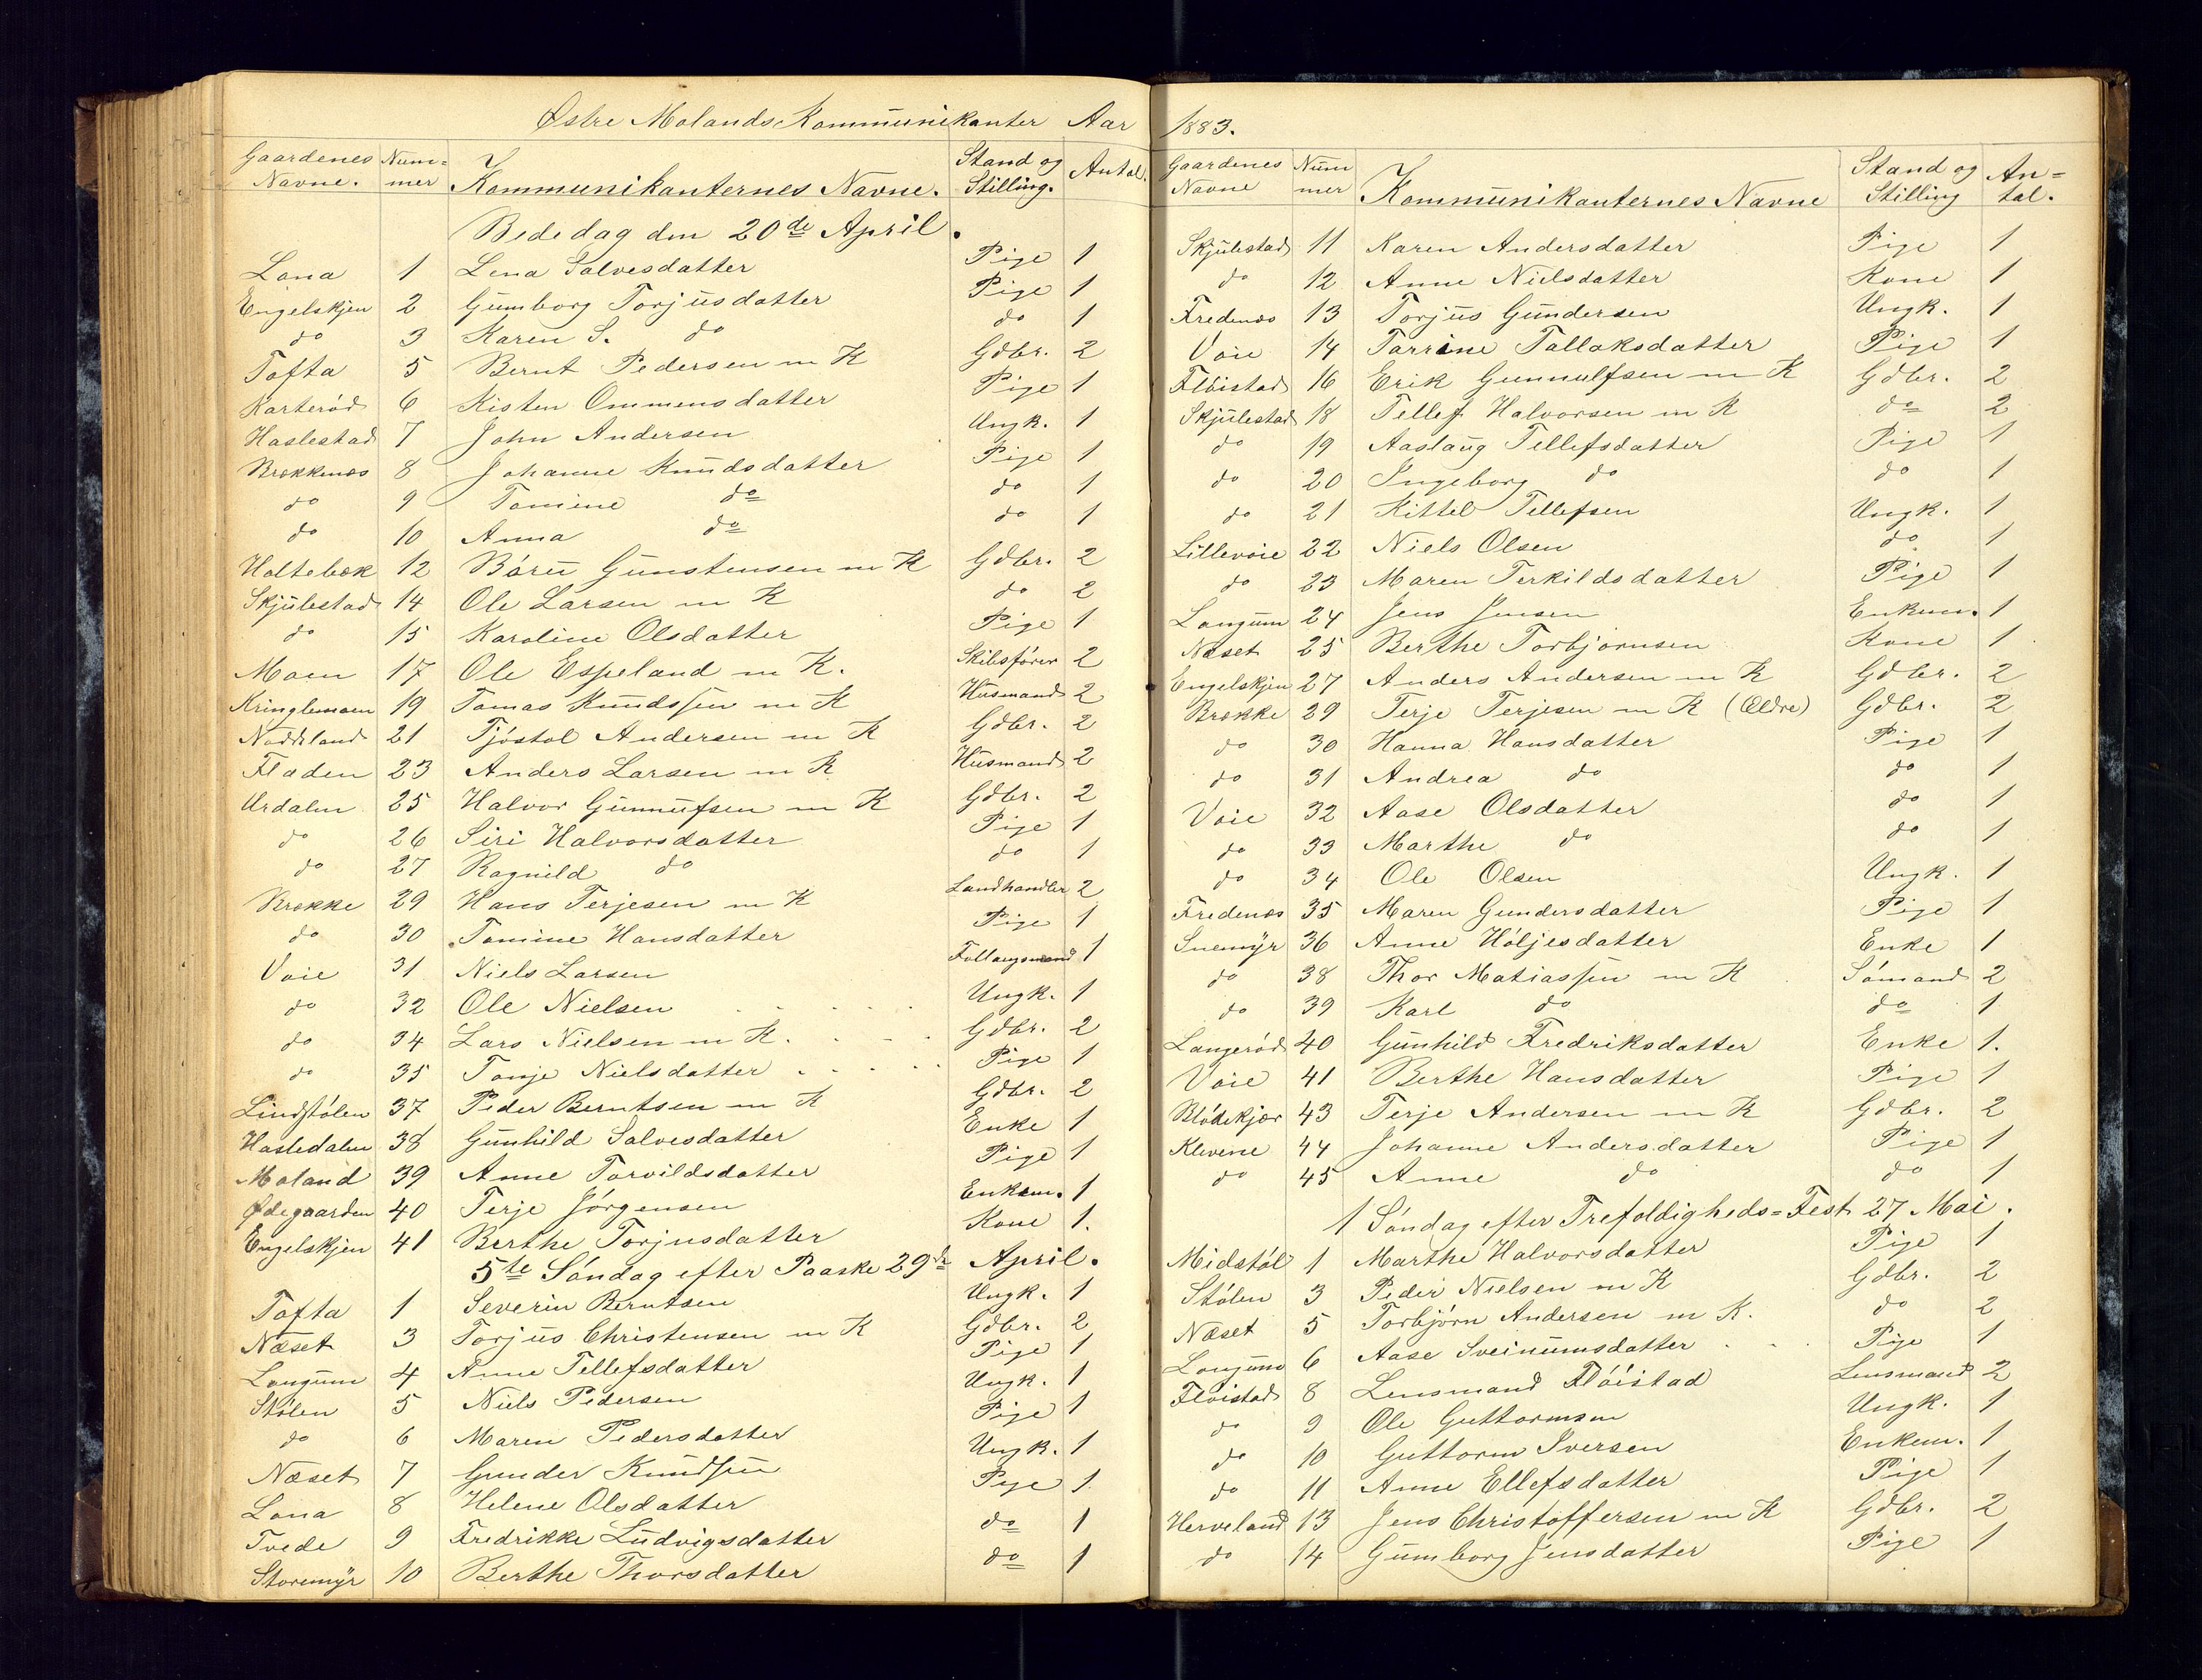 Østre Molands Kommunikanter Aar 1883.
Gaardenes Navne. Num=mer Kommunikanternes Navne. Stand og Stilling. Antal.
Bededag den 20de April.
Lona 1 Lena Salvesdatter Pige 1
Engelskjen 2 Gumborg Torjusdatter Pige 1
do 3 Karen S. do do 1
Tofta 5 Bernt Pedersen m K Gdbr. 2
Karteröd 6 Kisten Ommensdatter Pige 1
Haslestad 7 John Andersen Ungk. 1
Brækkenæs 8 Johanne Knudsdatter Pige 1
do 9 Tomine do do 1
do 10 Anna do do 1
Holtebæk 12 Báru Gunstensen m K Gdbr. 2
Skjulestad 14 Ole Larsen m K do 2
do 15 Karoline Olsdatter Pige 1
Moen 17 Ole Espeland m K. Skibsförer 2
Kringlemoen 19 Tomas Knudssen m K Husmand 2
Noddeland 21 Tjöstol Andersen m K Gdbr. 2
Fladen 23 Anders Larsen m K Husmand 2
Urdalen 25 Halvor Gunnufsen m K Gdbr. 2
do 26 Siri Halvorsdatter Pige 1
do 27 Ragnild do do 1
Brække 29 Hans Terjesen m K Landhandler 2
do 30 Tomine Hansdatter Pige 1
Voie 31 Niels Larsen Follaugsmand 1
do 32 Ole Nielsen Ungk. 1
do 34 Lars Nielsen m K. Gdbr. 2
do 35 Tonje Nielsdatter Pige 1
Lindstölen 37 Peder Berntsen m K Gdbr. 2
Hasledalen 38 Gunhild Salvesdatter Enke 1
Moland 39 Anne Torvildsdatter Pige 1
Ødegaarden 40 Terje Jörgensen Enkem. 1
Engelskjen 41 Berthe Torjusdatter Kone 1.
5te Söndag efter Paaske 29de April.
Tofta 1 Severin Berntsen Ungk. 1
Næset 3 Torjus Christensen m K Gdbr. 2
Longum 4 Anne Tellefsdatter Pige 1
Stölen 5 Niels Pedersen Ungk. 1
do 6 Maren Pedersdatter Pige 1
Næset 7 Gunder Knudsen Ungk. 1
Lona 8 Helene Olsdatter Pige 1
Tvede 9 Fredrikke Ludvigsdatter do 1
Storemyr 10 Berthe Thorsdatter do 1
Gaardenes Navne Num mer Kommunikanternes Navne Stand og Stilling An=tal.
Skjulestad 11 Karen Andersdatter Pige 1
do 12 Anne Nielsdatter Kone 1
Fredenæs 13 Torjus Gundersen Ungk. 1
Voie 14 Torrine Tallaksdatter Pige 1
Flöistad 16 Erik Gunnulfsen m K Gdbr. 2
Skjulestad 18 Tellef Halvorsen m K do 2
do 19 Aaslaug Tellefsdatter Pige 1
do 20 Ingeborg do do 1
do 21 Kittel Tellefsen Ungk. 1
Lillevoie 22 Niels Olsen do 1
do 23 Maren Terkildsdatter Pige 1
Longum 24 Jens Jensen Enkem. 1
Næset 25 Berthe Torbjornsen Kone 1
Engelskjen 27 Anders Andersen m K Gdbr. 2
Brække 29 Terje Terjesen m K (Ældre) Gdbr. 2
do 30 Hanna Hansdatter Pige 1
do 31 Andrea do do 1
Voie 32 Aase Olsdatter do 1
do 33 Marthe do do 1
do 34 Ole Olsen Ungk. 1
Fredenæs 35 Maren Gundersdatter Pige 1
Snemyr 36 Anne Höljesdatter Enke 1
do 38 Thor Matiassen m K Sömand 2
do 39 Karl do do 1
Langeröd 40 Gunhild Fredriksdatter Enke 1.
Voie 41 Berthe Hansdatter Pige 1
Blödekjær 43 Terje Andersen m K Gdbr. 2
Klevene 44 Johanne Andersdatter Pige 1
do 45 Anne do do 1
1 Söndag efter Trefoldigheds=Fest 27 Mai.
Midstöl 1 Marthe Halvorsdatter Pige 1
Stölen 3 Peder Nielsen m K Gdbr. 2
Næset 5 Torbjörn Andersen m K. do 2
Longum 6 Aase Sveinumsdatter Pige 1
Flöistad 8 Lensmand Flöistad Lensmand 2
do 9 Ole Guttormsen Ungk. 1
do 10 Guttorm Iversen Enkem. 1
do 11 Anne Ellefsdatter Pige 1
Herveland 13 Jens Christoffersen m K Gdbr. 2
do 14 Gumborg Jensdatter Pige 1